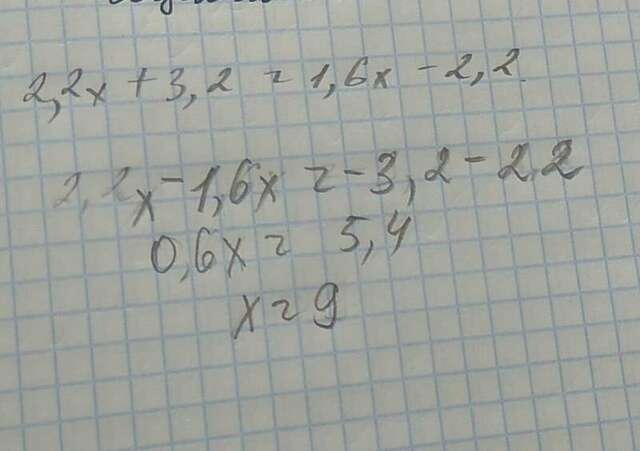 2,2x + 3,2 = 1,6x - 2,2
2,2x - 1,6x = -3,2 - 2,2
0,6x = 5,4
x = 9